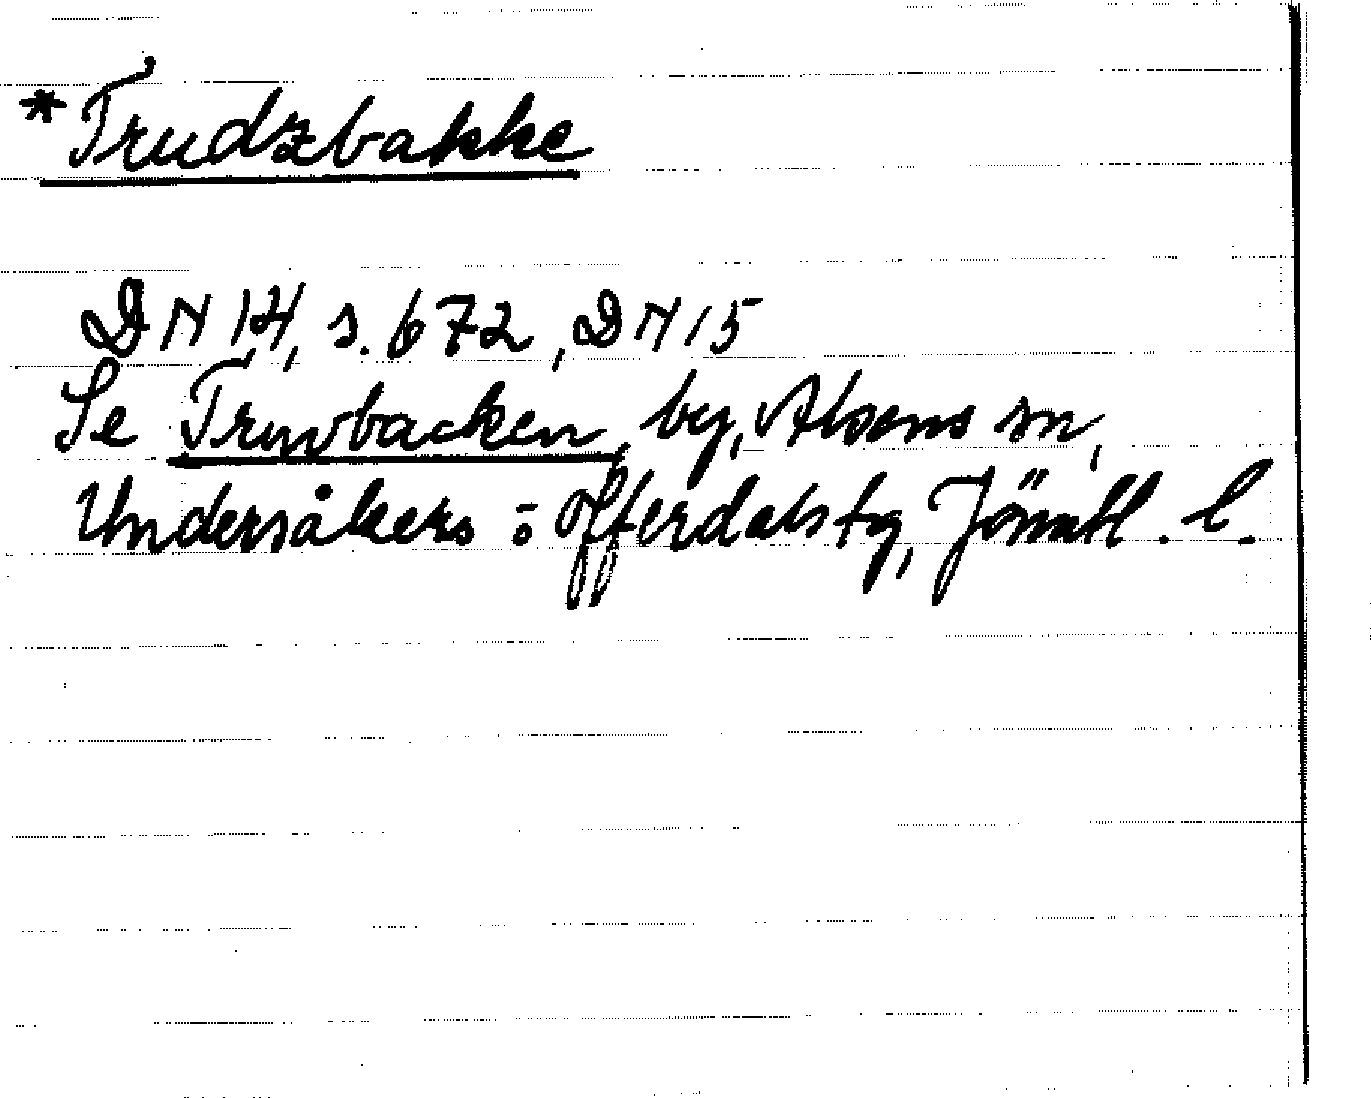 *Trudzbakke
DN 14, s. 672, DN 15
Se Trusbacken, by, Alsens sn,
Undersåkers o Offerdals tg, Jämtl. l.